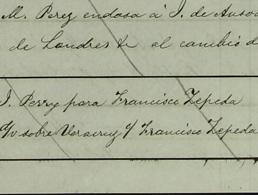 M. Perez endosa á J. de Ansoa
de Londres &c al cambio d
J. Perry para Francisco Zepeda
g/v sobre Veracruz y/ Francisco Zepeda